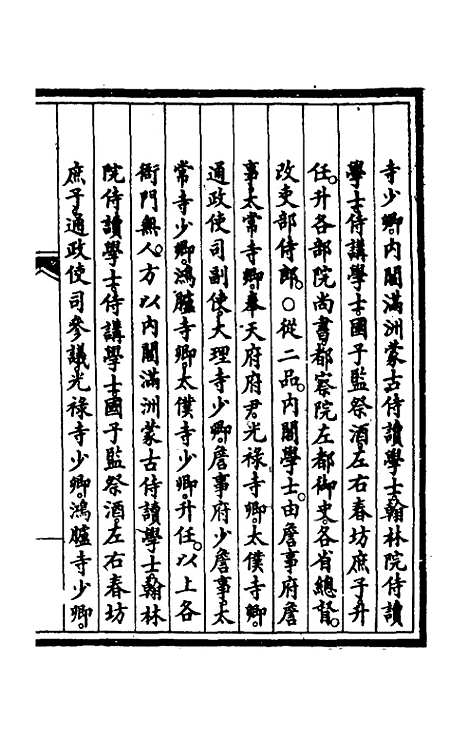 寺少卿。内閣滿洲蒙古侍讀學士。翰林院侍讀
學士。侍講學士。國子監祭酒。左右春坊庶子。升
任。升各部院尚書。都察院左都御史。各省總督。
改吏部侍郎。○從二品。内閣學士。由詹事府詹
事。太常寺卿。奉天府府尹。光祿寺卿。太僕寺卿。
通政使司副使。大理寺少卿。詹事府少詹事。太
常寺少卿。鴻臚寺卿。太僕寺少卿。升任。以上各
衙門無人。方以内閣滿洲蒙古侍讀學士。翰林
院侍讀學士。侍講學士。國子監祭酒。左右春坊
庶子。通政使司參議。光祿寺少卿。鴻臚寺少卿。